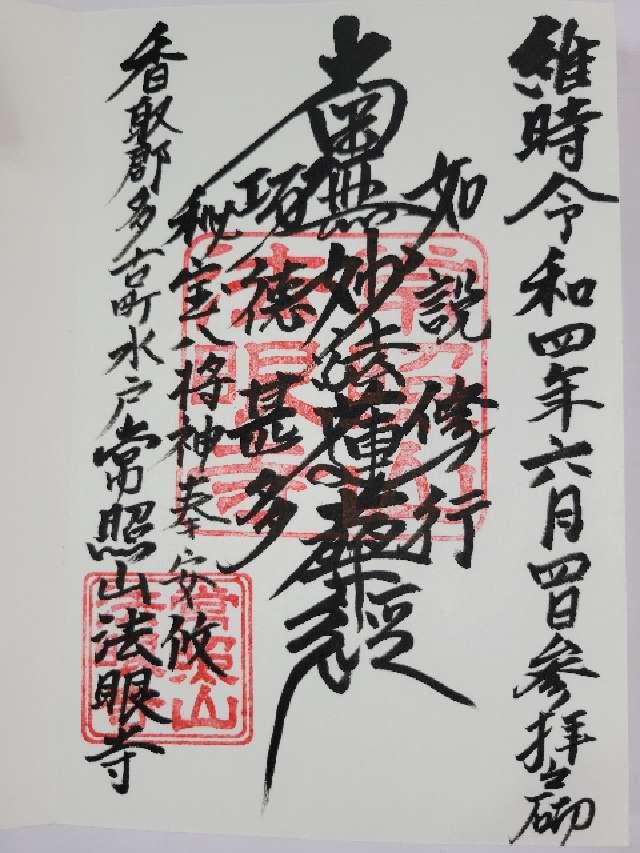 維時令和四年六月四日参拝之砌
如説修行
南無妙法蓮華経
功徳甚多
秘宝八将神奉安
香取郡多古町水戸常照山法眼寺
常照山
法眼寺
常照山